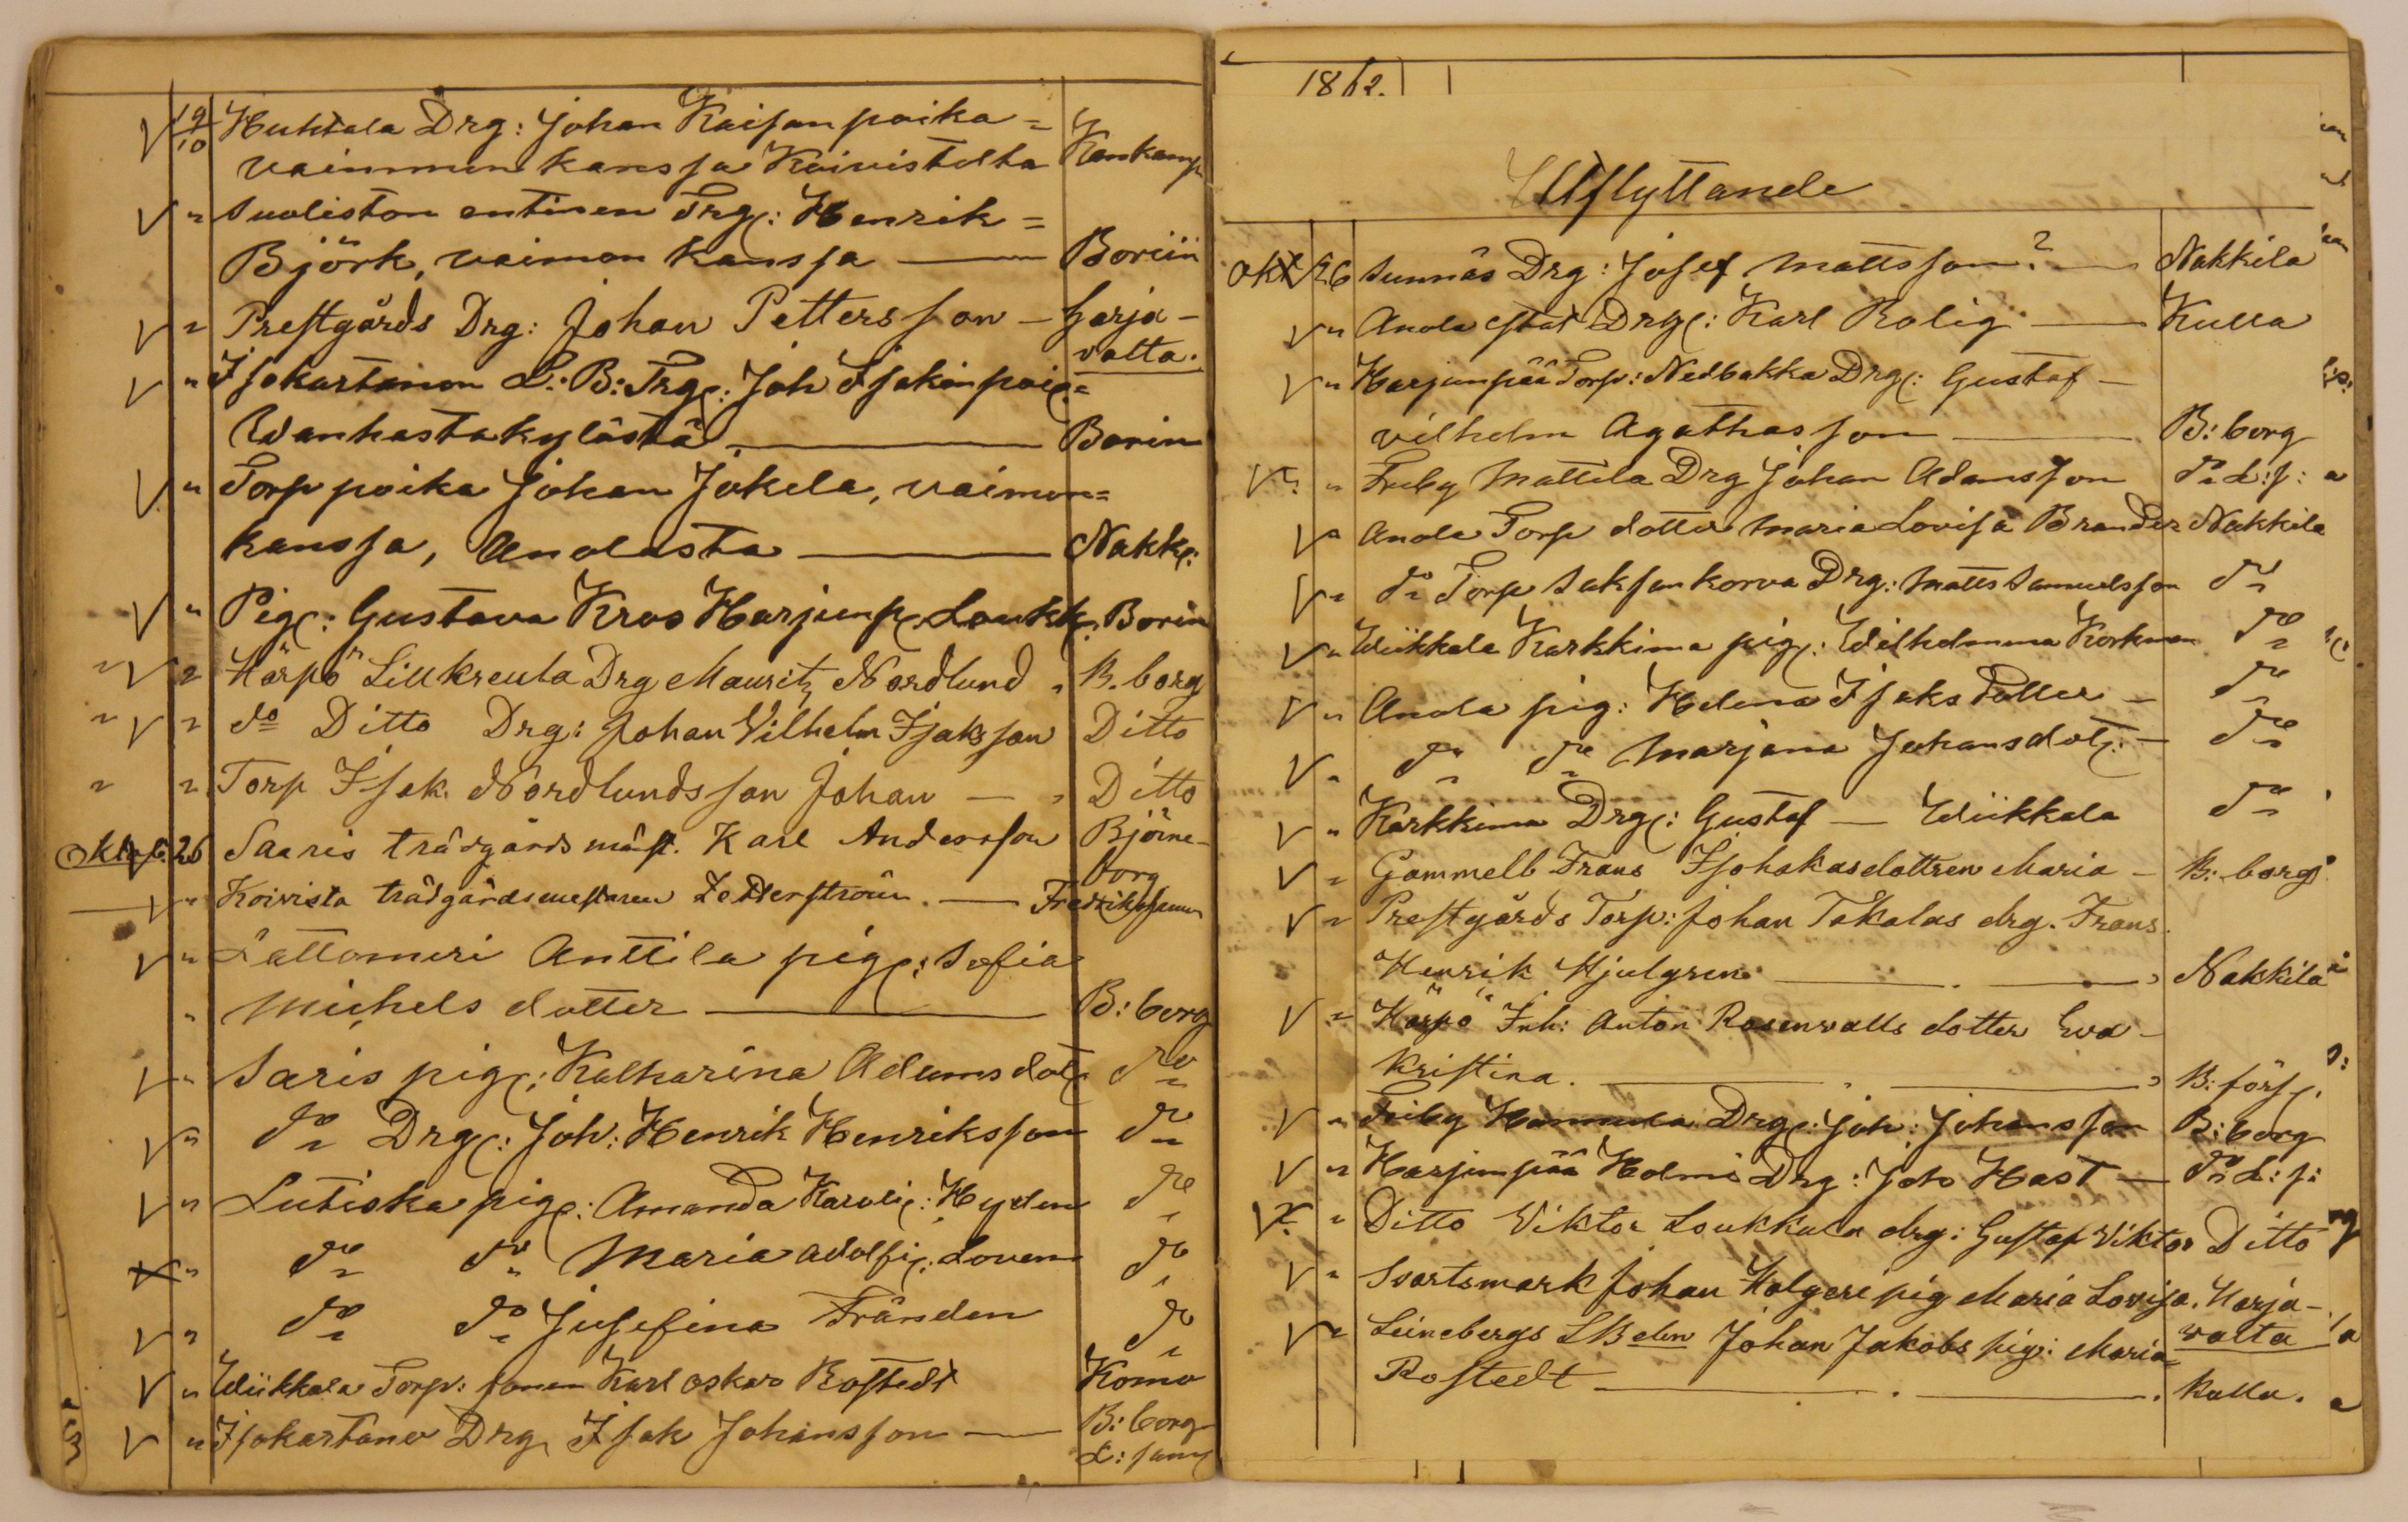 19/10 Huhtala Drg: Johan Kaisanpoika =
vaimmon kanssa Koivistolta Kankanp
" Suoliston entinen Drg: Henrik =
Björk, vaimon kanssa — Boriin
" Prestgårds Drg: Johan Pettersson — Harja-
valta.
" Isokartanon L: B: Drg: Joh Isakinpoig =
Wanhastakylästä — Borin
" Torp poika Johan Jokela, vaimon =
kanssa, Anolasta — Nakk:
" Pig: Gustava Kros Harjunp. Loukk. Borin
" Härpö Lillkreula Drg Mauritz Nordlund " B. borg
" do Ditto Drg: Johan Vilhelm Isaksson Ditto
" Torp Isak Nordlundsson Johan — " Ditto
Oktob. 26 Saaris trädgårdsmäst. Karl Andersson Björne-
borg
" Koivisto trädgårdsmestaren Zedderström. — Fredrikshamn
" Lattomeri Anttila pig: Sofia
" Michels dotter — B: borg
" Saris pig: Katharina Adamsdot do
" do Drg: Joh: Henrik Henriksson do
" Lutiska pig: Amanda Karoli: Hyden do
" do do Maria Adolfi: Loven do
" do do Josefina Tränden do
" Wiikkala Torp: sonen Karl Oskar Rostedt Komo
" Isokartano Drg Isak Johansson — B: borg
L: sam
1862.
Utflyttande
Okt 26 Sunnäs Drg: Josef Mattsson? — Nakkila
" Anola estat Drg: Karl Rolig — Kulla
" Harjunpää Torp: Nedbakka Drg: Gustaf —
vilhelm Agathasson — B: borg
" Friby Mattila Drg Johan Adamsson do L: f:
" Anola Torp dotter Maria Lovisa Brander Nakkila
" do Torp Saksankorva Drg: Matts Samuelsson do
" Wiikkala Karkkima pig: Wilhelmina Korkman do
" Anola pig: Helena Isaksdotter — do
" do do Marjana Johansdot: — do
" Karkkima Drg: Gustaf — Wiikkala do
" Gammelb Frans Isohakasdottren Maria — B: borg
" Prestgårds Torp: Johan Takalas drg. Frans
Henrik Hjulgren — Nakkila
" Härpö Inh: Anton Rosenvalls dotter Eva —
Kristina. — B: förs.
" Friby Hannula Drg: Joh: Johansson B: borg
" Harjunpää Holmi Drg: Joh Hast — do L: f:
" Ditto Viktor Loukkala drg: Gustaf Viktor Ditto
" Svartsmark Johan Holgeri pig Maria Lovisa. Harja-
valta
" Leinebergs LBelen Johan Jakobs pig: Maria =
Rostedt — Kulla.